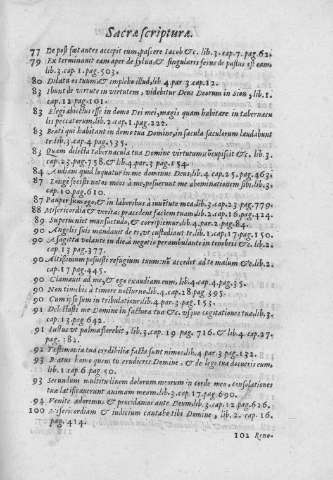 Sacræ scripturæ.
77 De post fœtantes accepit eum, pascere Iacob &c. lib.3.cap.7.pag.62.
79 Exterminauit eam aper de sylua, & singularis ferus depastus est eam
lib.3.cap.1.pag.503.
80 Dilata os tuum, & implebo illud, lib.4.par 3.cap.12.
83 Ibunt de virtute in virtutem, videbitur Deus Deorum in Sion, lib.1.
cap.12 pag.101.
83 Elegi abiectus esse in domo Dei mei, magis quam habitare in tabernacu
lis peccatorum, lib.2.cap.1.pag.222.
83 Beati qui habitant in domo tua Domine, in sæcula sæculorum laudabunt
te, lib.3.cap.4.pag.535.
83 Quam dilecta tabernacula tua Domine virtutum, concupiscit &c. lib.3.
cap.23.pag.758.& lib.4.par 3.pag.154.
84 Audiam quid loquatur in me dominus Deus, lib.4.cap.25.pag.463.
87 Longe fecisti notos meos à me, posuerunt me abominationem sibi, lib.3.
cap.10.pag.610.
87 Pauper sum ego, & in laboribus à iuuentute mea, lib.3.cap.23.pag.779.
88 Misericordia & veritas præcedent faciem tuam, lib.2.cap.16.pag.424.
89 Supervenit mansuetudo, & corripiemur, lib.4.par.2.pag.84.
90 Angelis suis mandauit de te, vt custodiant te, lib.1.cap.17.pag.150.
90 A sagitta volante in die, à negotio perambulante in tenebris &c. lib.2.
cap.13 pag.377.
90 Altissimum posuisti refugium tuum: non accedet ad te malum &c. lib.2.
cap.17 pag.445.
90 Clamauit ad me, & ego exaudiam eum, lib.4.cap.4.pag.35.
90 Non timebis à timore nocturno lib.4.cap.28 pag.595.
90 Cum ipso sum in tribulatione, lib.4.par.3.pag.153.
91 Delectasti me Domine in factura tua &c. vsque cogitationes tuæ, lib.3.
cap.13 pag.642.
91 Iustus vt palma florebit, lib.3.cap.19 pag.716. & lib.4.cap.27.
pag.582.
92 Testimonia tua credibilia facta sunt nimis, lib.4.par 3.pag.132.
93 Beatus homo quem tu erudieris Domine, & de lege tua docueris eum,
lib.1.cap.6.pag.50.
93 Secundum multitudinem dolorum meorum in corde meo, consolationes
tuæ lætificauerunt animam meam, lib.3.cap.17.pag.690.
94 Venite adoremus & procidamus ante Deum, lib.3.cap.12 pag.626.
100 Misericordiam & iudicium cantabo tibi Domine, lib.2.cap.16.
pag.414.
102 Reno-